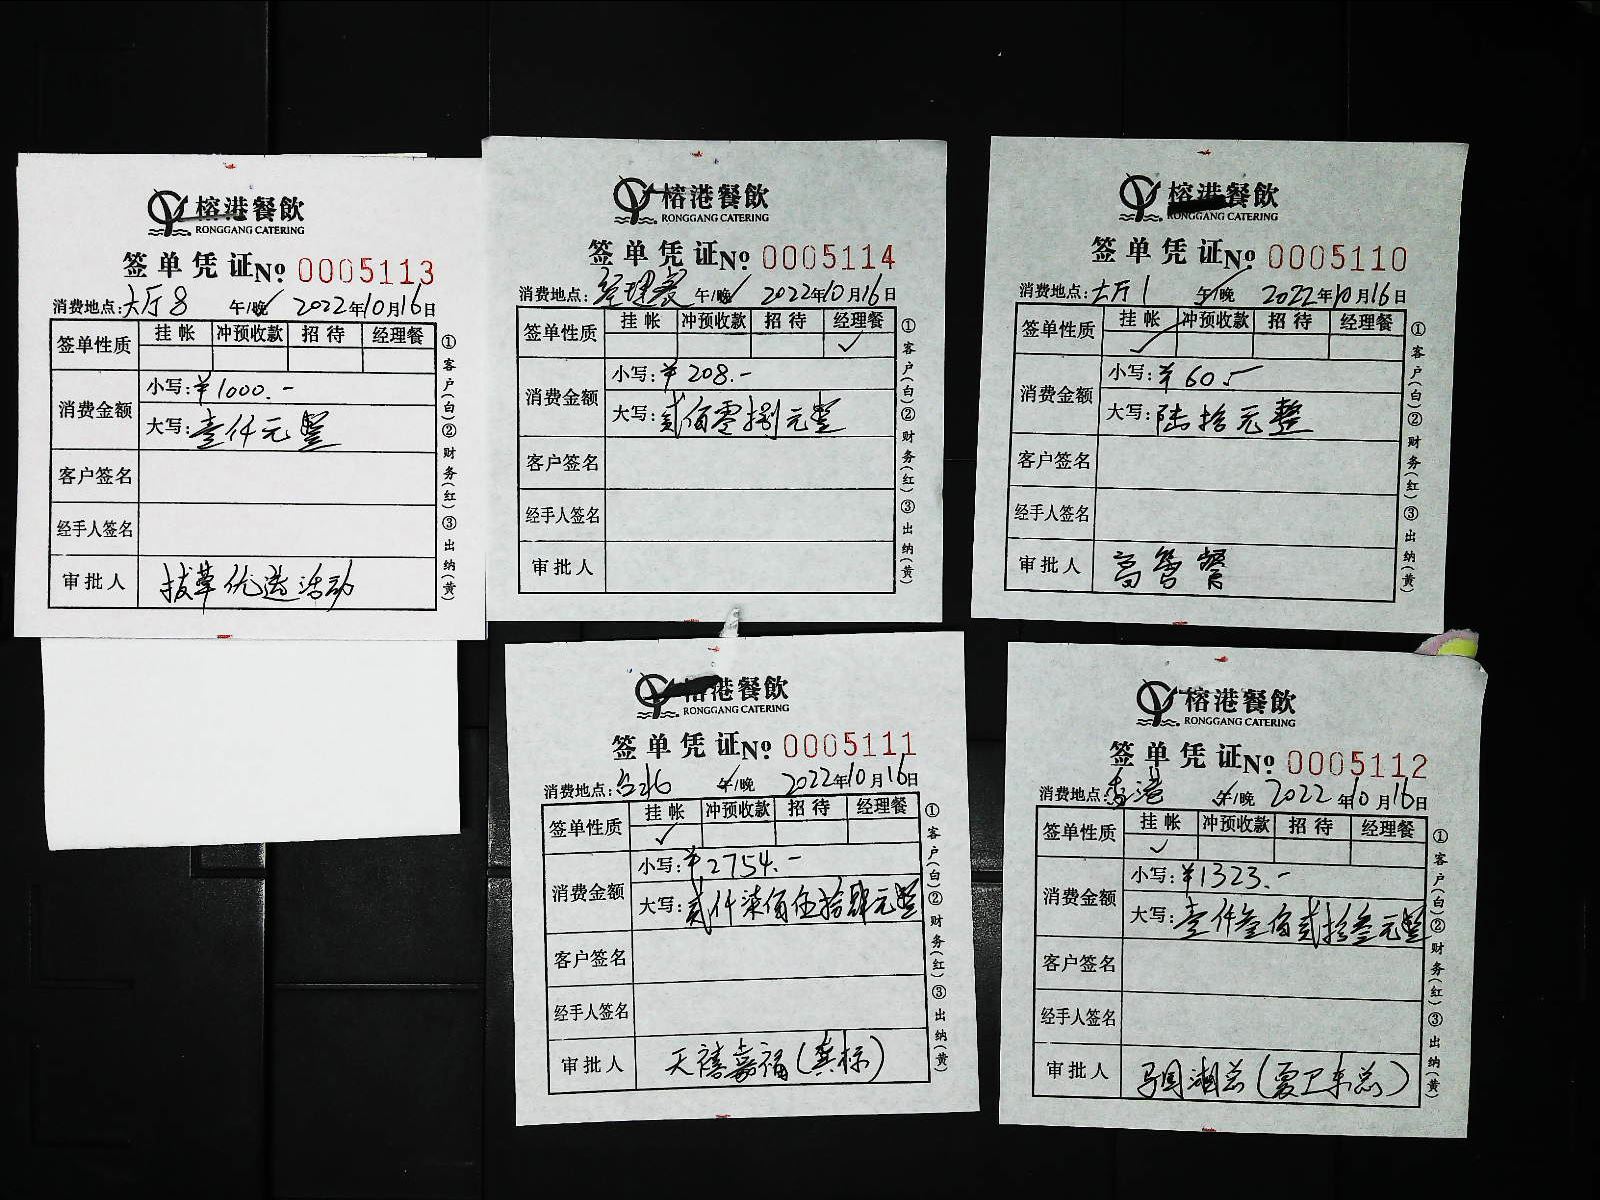 榕港餐飲
RONGGANG CATERING
签单凭证№ 0005113
消费地点:大厅8 午/晚 2022年10月16日
签单性质 挂帐 冲预收款 招待 经理餐
消费金额 小写:¥1000.-
大写:壹仟元整
客户签名
经手人签名
审批人 拔草优选活动
①客户(白)②财务(红)③出纳(黄)
榕港餐飲
RONGGANG CATERING
签单凭证№ 0005114
消费地点:经理餐 午/晚 2022年10月16日
签单性质 挂帐 冲预收款 招待 经理餐
消费金额 小写:¥208.-
大写:贰佰零捌元整
客户签名
经手人签名
审批人
①客户(白)②财务(红)③出纳(黄)
榕港餐飲
RONGGANG CATERING
签单凭证№ 0005110
消费地点:大厅1 午/晚 2022年10月16日
签单性质 挂帐 冲预收款 招待 经理餐
消费金额 小写:¥60.-
大写:陆拾元整
客户签名
经手人签名
审批人 高管餐
①客户(白)②财务(红)③出纳(黄)
榕港餐飲
RONGGANG CATERING
签单凭证№ 0005111
消费地点:台北 午/晚 2022年10月16日
签单性质 挂帐 冲预收款 招待 经理餐
消费金额 小写:¥2754.-
大写:贰仟柒佰伍拾肆元整
客户签名
经手人签名
审批人 天禧嘉福(龚标)
①客户(白)②财务(红)③出纳(黄)
榕港餐飲
RONGGANG CATERING
签单凭证№ 0005112
消费地点:香港 午/晚 2022年10月16日
签单性质 挂帐 冲预收款 招待 经理餐
消费金额 小写:¥1323.-
大写:壹仟叁佰贰拾叁元整
客户签名
经手人签名
审批人 马国湘总(夏卫东总)
①客户(白)②财务(红)③出纳(黄)